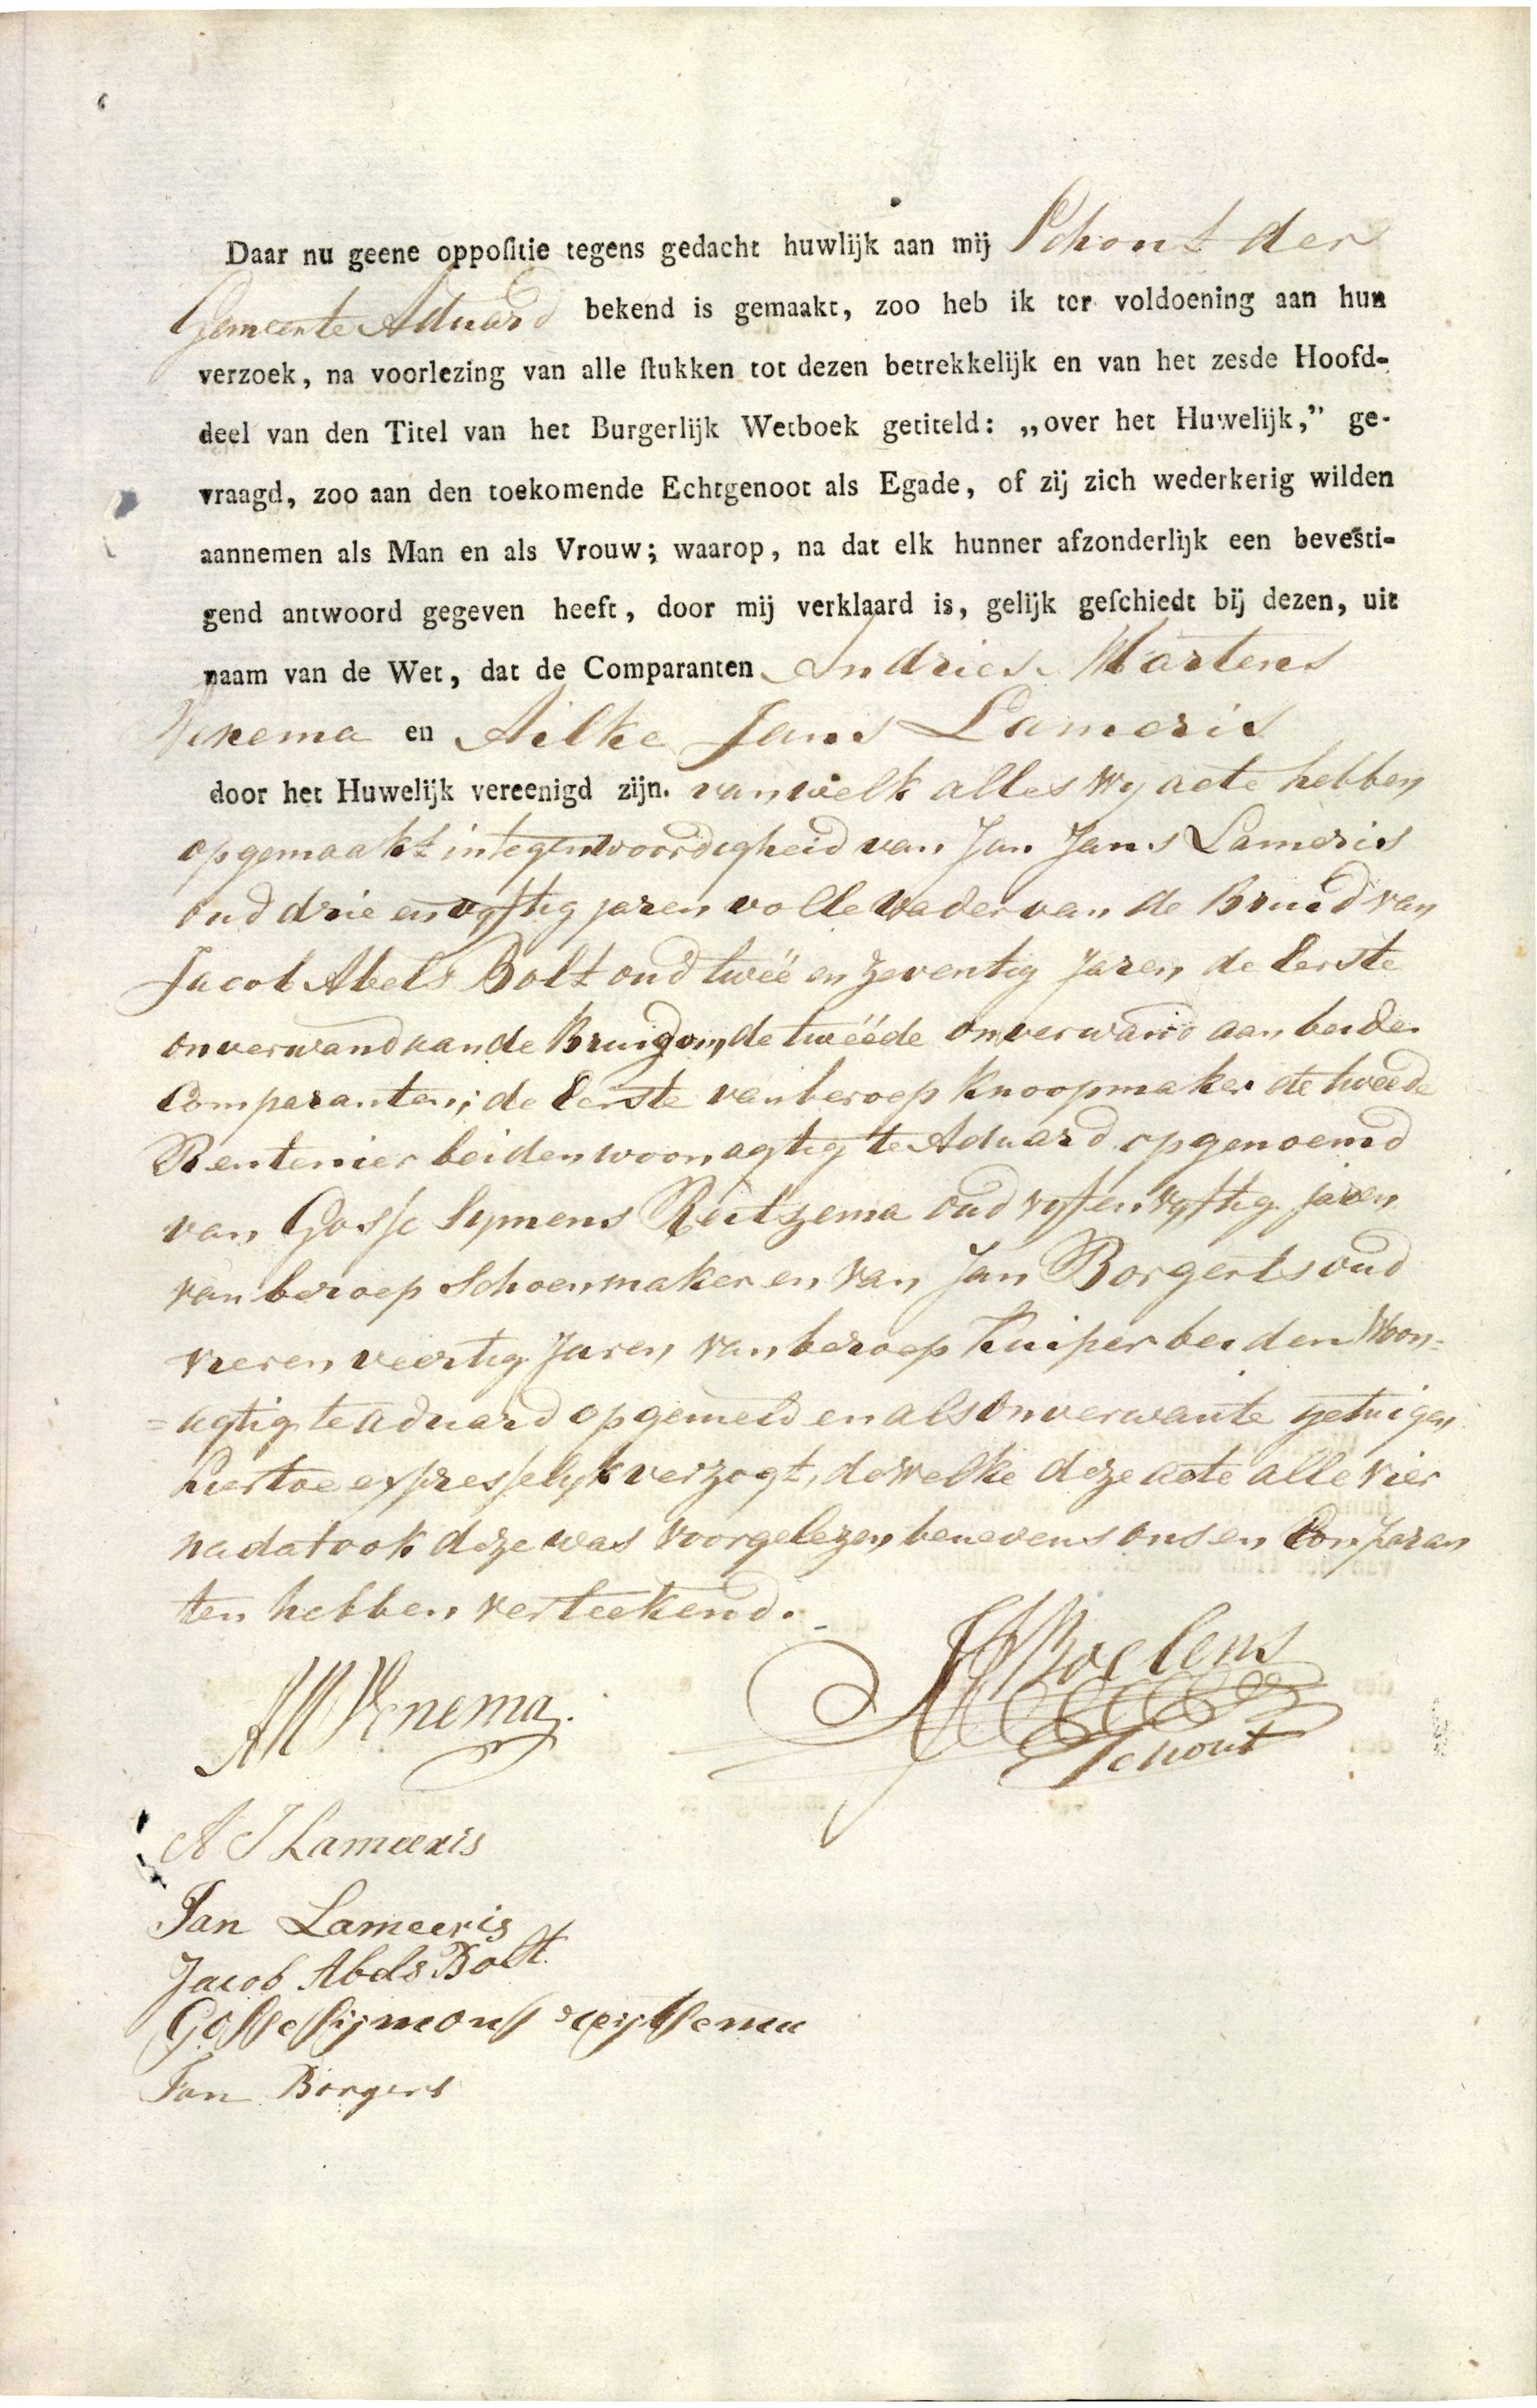 Daar nu geene oppoſitie tegens gedacht huwlijk aan mij Schout der
Gemeente Aduard bekend is gemaakt, zoo heb ik ter voldoening aan hun
verzoek, na voorlezing van alle ſtukken tot dezen betrekkelijk en van het zesde Hoofd-
deel van den Titel van het Burgerlijk Wetboek getiteld: „over het Huwelijk,” ge-
vraagd, zoo aan den toekomende Echtgenoot als Egade, of zij zich wederkerig wilden
aannemen als Man en als Vrouw; waarop, na dat elk hunner afzonderlijk een bevesti-
gend antwoord gegeven heeft, door mij verklaard is, gelijk geſchiedt bij dezen, uit
naam van de Wet, dat de Comparanten Andries Martens
Venema en Ailke Jans Lameris
door het Huwelijk vereenigd zijn. van welk alles wy acte hebben
opgemaakt in tegenwoordigheid van Jan Jans Lameris
oud drie en vyftig jaren volle vader van de Bruid van
Jacob Abels Bolt oud tweë en zeventig Jaren, de Eerste
onverwand aan de Bruidgom, de tweéde onverwand aan beide
Comparanten; de Eerste van beroep Knoopmaker de tweede
Rentenier beiden woonagtig te Aduard opgenoemd
van Gosse Symens Reitzema oud vyf en vyftig jaren
van beroep Schoenmaker en van Jan Borgerts oud
vier en veertig Jaren, van beroep Kuiper beiden Woon=
=agtig te Aduard opgemeld en als onverwante getuigen
hiertoe expresselyk verzogt, dewelke deze acte alle vier
nadat ook deze was voorgelezen, benevens ons en Comparan
ten hebben verteekend.
AM Venema
Boelens
Schout
A J Lameeris
Jan Lameeris
Jacob Abels Bolt
Gosse Sijmons reijtsema
Jan Borgers